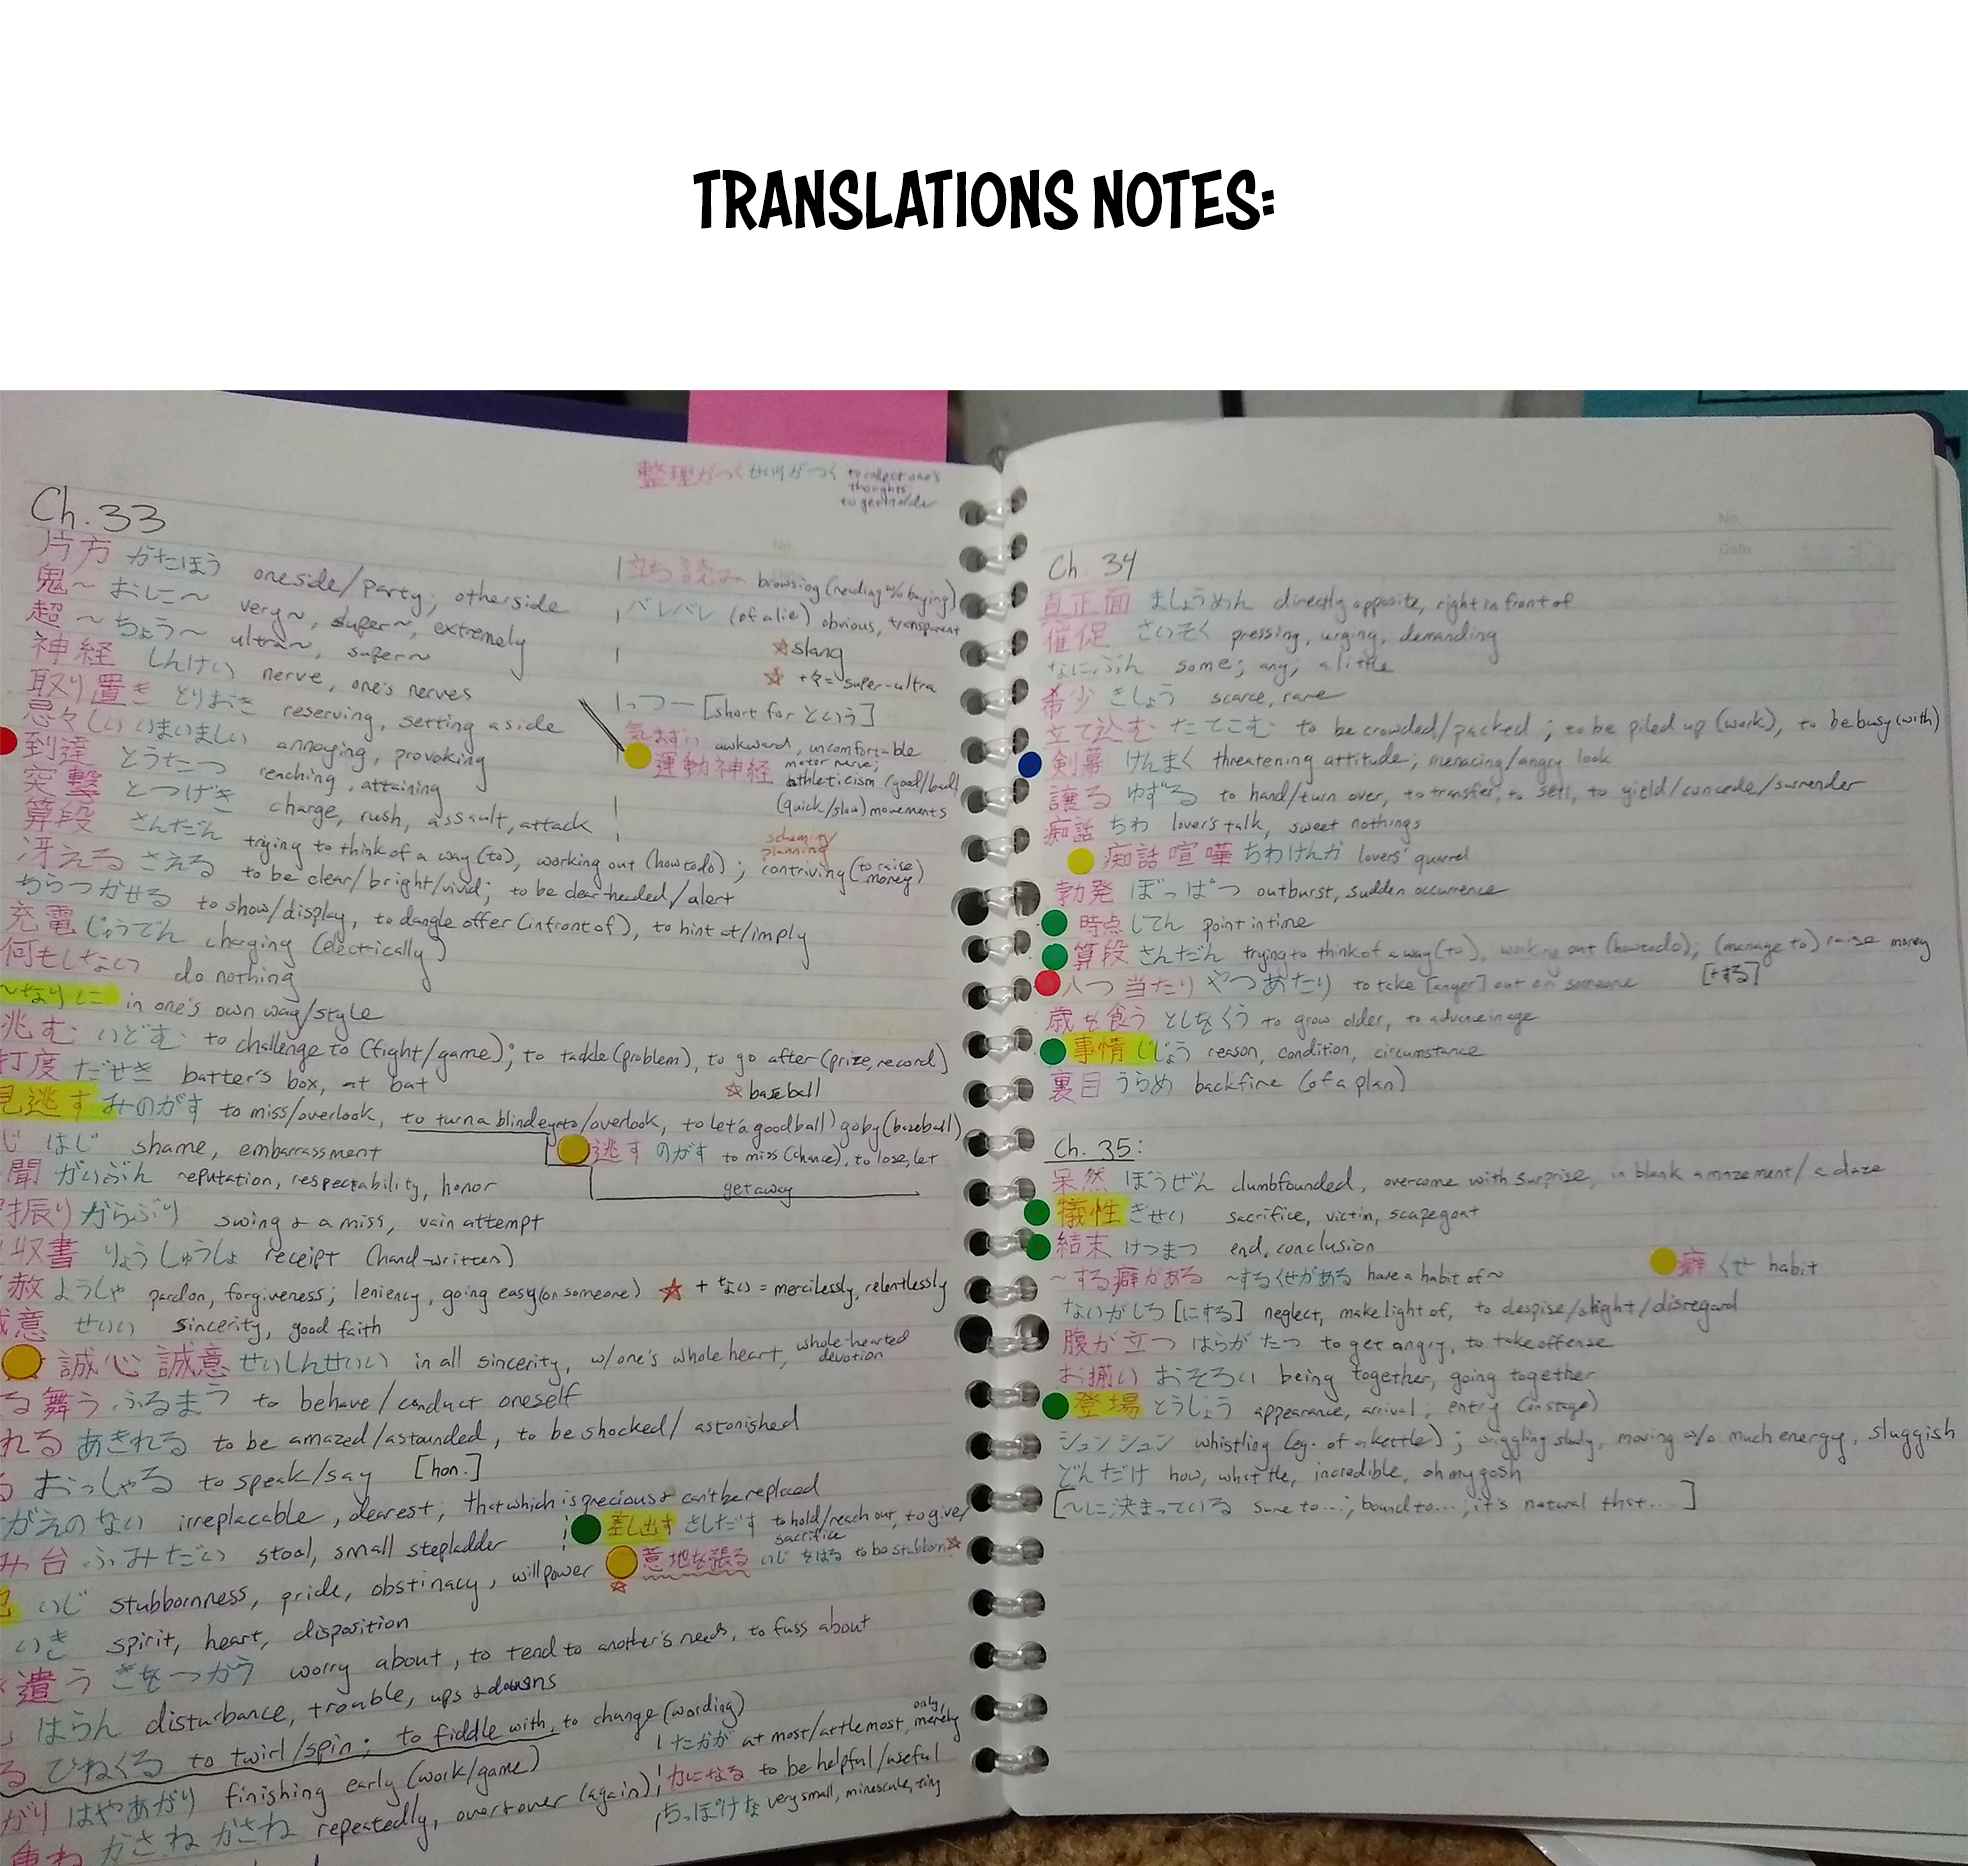 TRANSLATIONS NOTES:
整理がつく せいりがつく to collect one's thoughts, to get in order
Ch. 33
片方 かたほう one side/party; other side
鬼~ おに~ very~, super~, extremely
超~ ちょう~ ultra~, super~
神経 しんけい nerve, one's nerves
取り置き とりおき reserving, setting aside
忌々しい いまいましい annoying, provoking
到達 とうたつ reaching, attaining
突撃 とつげき charge, rush, assault, attack
算段 さんだん trying to think of a way (to), working out (how to do); contriving (to raise money)
scheming/planning
冴える さえる to be clear/bright/vivid; to be clear-headed/alert
ちらつかせる to show/display, to dangle offer (in front of), to hint at/imply
充電 じゅうでん charging (electrically)
何もしない do nothing
~なりに in one's own way/style
挑む いどむ to challenge to (fight/game); to tackle (problem), to go after (prize, record)
打席 だせき batter's box, at bat
☆ baseball
見逃す みのがす to miss/overlook, to turn a blind eye to/overlook, to let a good ball go by (baseball)
逃す のがす to miss (chance), to lose, let get away
じ はじ shame, embarrassment
聞 がいぶん reputation, respectability, honor
振り からぶり swing & a miss, vain attempt
収書 りょうしゅうしょ receipt (hand-written)
赦 ようしゃ pardon, forgiveness; leniency, going easy (on someone) ☆ + ない = mercilessly, relentlessly
意 せいい sincerity, good faith
誠心誠意 せいしんせいい in all sincerity, w/one's whole heart, whole-hearted devotion
る舞う ふるまう to behave/conduct oneself
れる あきれる to be amazed/astounded, to be shocked/astonished
る おっしゃる to speak/say [hon.]
がえのない irreplacable, dearest; that which is precious & can't be replaced
差し出す さしだす to hold/reach out, to give/sacrifice
み台 ふみだい stool, small stepladder
いじ stubbornness, pride, obstinacy, willpower
意地を張る いじをはる to be stubborn ☆
いき spirit, heart, disposition
遣う きをつかう worry about, to tend to another's needs, to fuss about
はらん disturbance, trouble, ups & downs
る ひねくる to twirl/spin; to fiddle with, to change (wording)
がり はやあがり finishing early (work/game)
重ね かさねがさね repeatedly, over & over (again)
立ち読み browsing (reading w/o buying)
バレバレ (of a lie) obvious, transparent
☆ slang
☆ +々= super-ultra
っつー [short for という]
気まずい awkward, uncomfortable
運動神経 motor nerve; athleticism (good/bad)
(quick/slow) movements
たかが at most/at the most, only, merely
力になる to be helpful/useful
ちっぽけな very small, minescule, tiny
No.
Date
Ch. 34
真正面 ましょうめん directly opposite, right in front of
催促 さいそく pressing, urging, demanding
なにぶん some; any; a little
希少 きしょう scarce, rare
立て込む たてこむ to be crowded/packed; to be piled up (work), to be busy (with)
剣幕 けんまく threatening attitude; menacing/angry look
譲る ゆずる to hand/turn over, to transfer, to sell, to yield/concede/surrender
痴話 ちわ lover's talk, sweet nothings
痴話喧嘩 ちわけんか lovers' quarrel
勃発 ぼっぱつ outburst, sudden occurrence
時点 じてん point in time
算段 さんだん trying to think of a way (to), working out (how to do); (manage to) raise money
[+する]
八つ当たり やつあたり to take [anger] out on someone
歳を食う としをくう to grow older, to advance in age
事情 じじょう reason, condition, circumstance
裏目 うらめ backfire (of a plan)
Ch. 35:
呆然 ぼうぜん dumbfounded, overcome with surprise, in blank amazement/a daze
犠牲 ぎせい sacrifice, victim, scapegoat
結末 けつまつ end, conclusion
~する癖がある ~するくせがある have a habit of~
癖 くせ habit
ないがしろ [にする] neglect, make light of, to despise/slight/disregard
腹が立つ はらがたつ to get angry, to take offense
お揃い おそろい being together, going together
登場 とうじょう appearance, arrival; entry (on stage)
シュンシュン whistling (eg. of a kettle); wriggling slowly, moving w/o much energy, sluggish
どんだけ how, what the, incredible, oh my gosh
[~に決まっている sure to...; bound to...; it's natural that...]